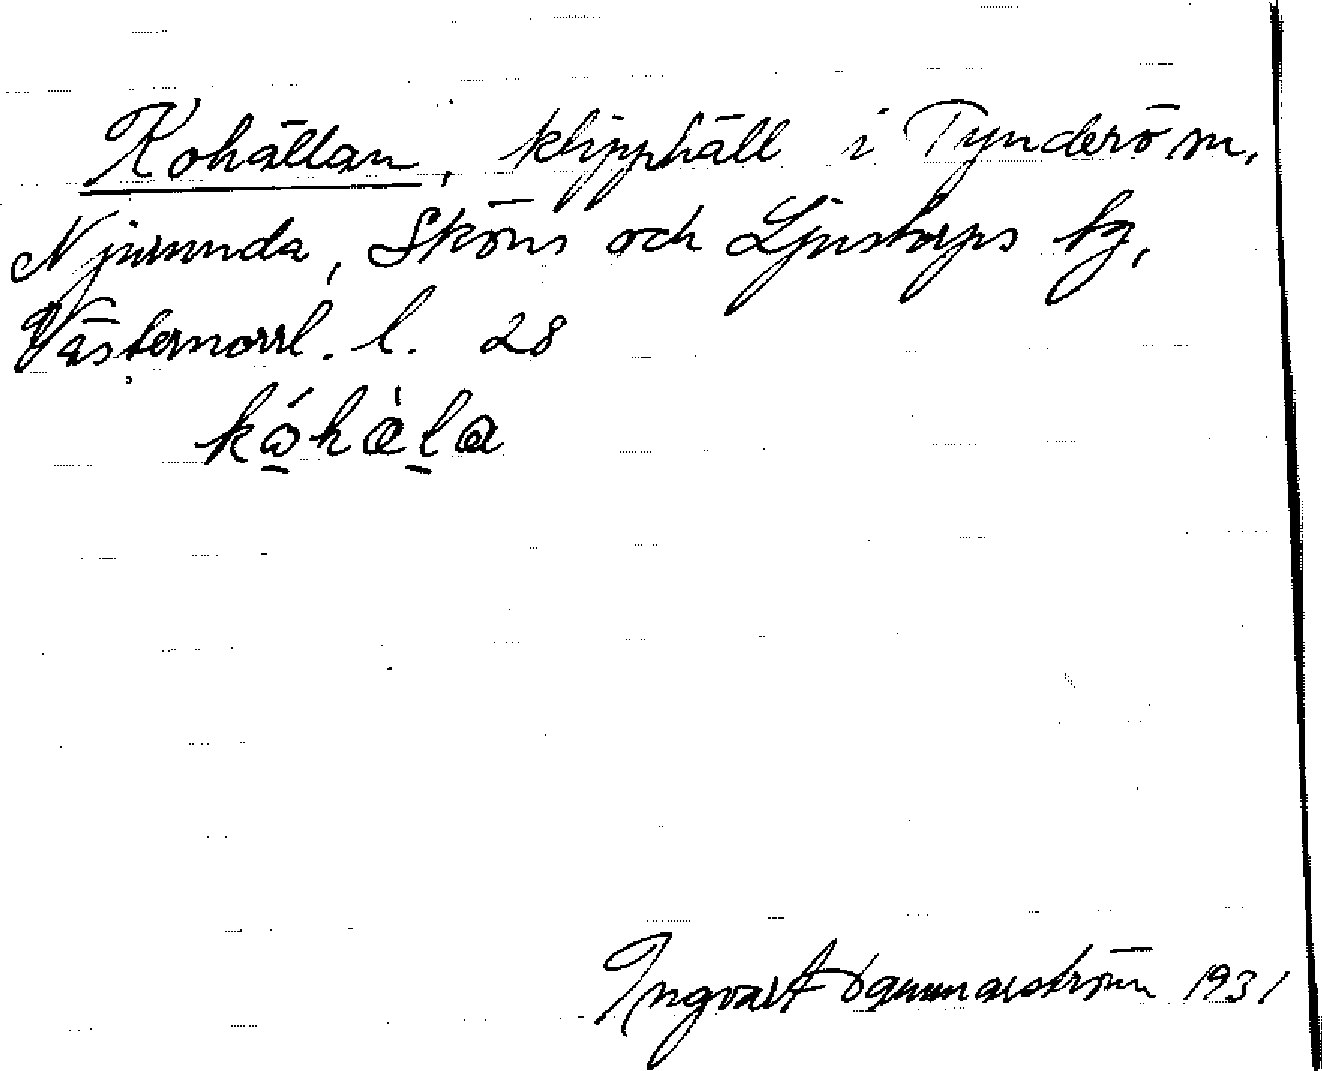 Kohällan, klipphäll i Tynderö sn,
Njurunda, Sköns och Ljustorps tg,
Västernorrl. l. 28
kóhæ̀la
Ingvart Hammarström 1931